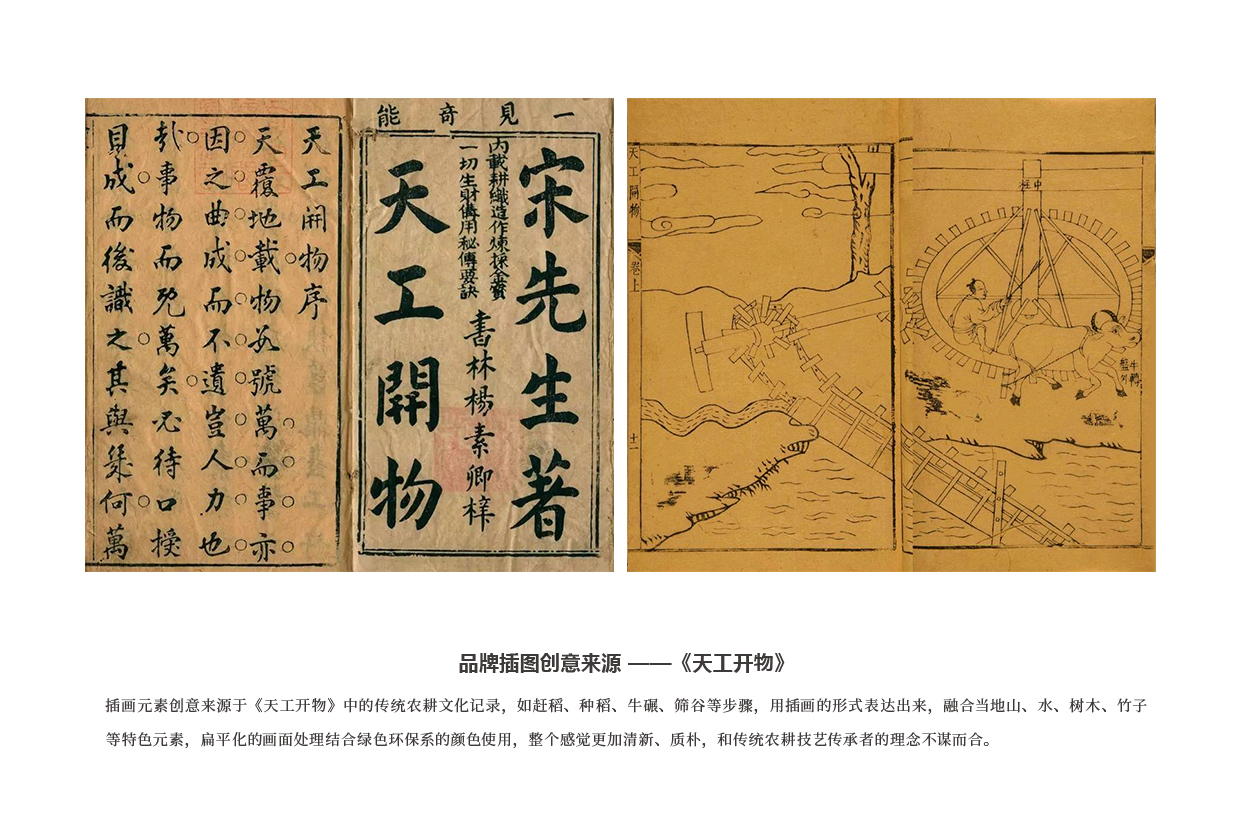 一見奇能
宋先生著
內載耕織造作煉採金寶
一切生財備用秘傳要訣
書林楊素卿梓
天工開物
天工開物序
天覆地載物數號萬而事亦
因之曲成而不遺豈人力也
哉事物而既萬矣必待口授
目成而後識之其與幾何萬
天工開物
卷上
十二
中柱
牛轉
盤
品牌插图创意来源 ——《天工开物》
插画元素创意来源于《天工开物》中的传统农耕文化记录，如赶稻、种稻、牛碾、筛谷等步骤，用插画的形式表达出来，融合当地山、水、树木、竹子
等特色元素，扁平化的画面处理结合绿色环保系的颜色使用，整个感觉更加清新、质朴，和传统农耕技艺传承者的理念不谋而合。